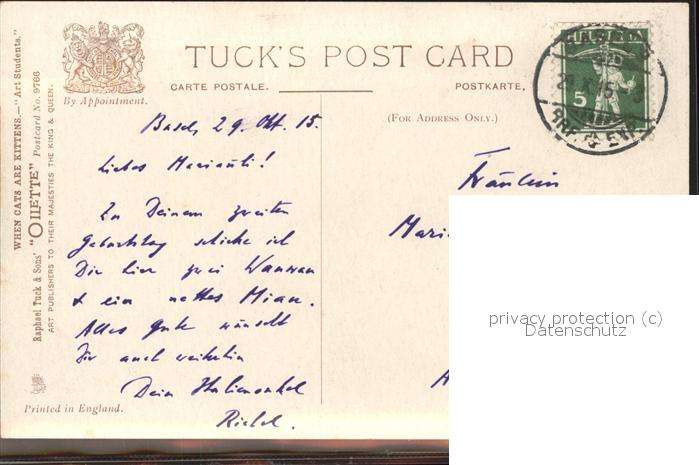 WHEN CATS ARE KITTENS.—"Art Students."
Raphael Tuck & Sons' "OILETTE" Postcard No. 9766
ART PUBLISHERS TO THEIR MAJESTIES THE KING & QUEEN.
By Appointment.
TUCK'S POST CARD
CARTE POSTALE.
POSTKARTE.
(FOR ADDRESS ONLY.)
HELVETIA
5
Basel, 29. Okt. 15.
Liebes Mariauti!
Zu Deinem zweiten
Geburtstag schicke ich
Dir hier zwei Wauwau
& ein nettes Miau.
Alles Gute wünscht
Dir auch weiterhin
Dein Italienonkel
Fräulein
Mari
privacy protection (c)
Datenschutz
Printed in England.